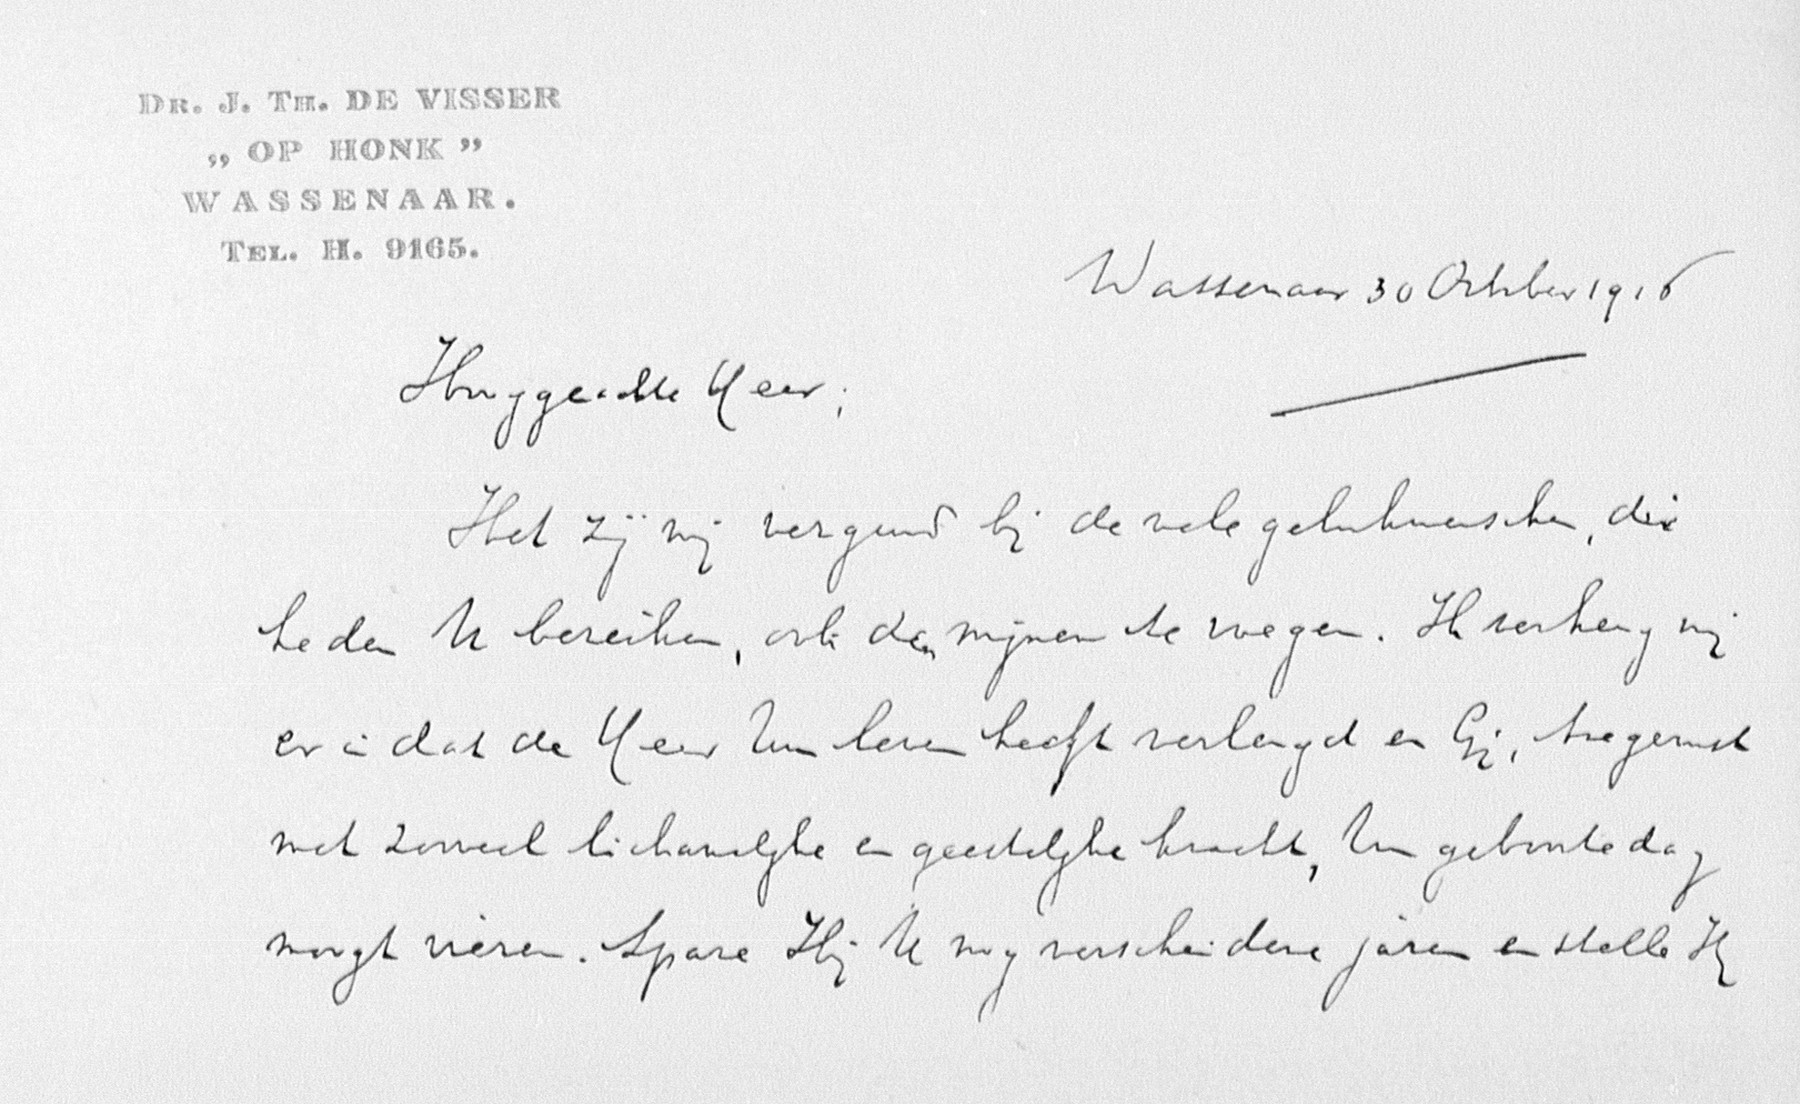 DR. J. TH. DE VISSER
„ OP HONK ”
WASSENAAR.
TEL. H. 9165.
Wassenaar 30 October 1916
Hooggeachte Heer,
Het zij mij vergund bij de vele gelukwenschen, die
heden U bereiken, ook den mijnen te voegen. Ik verheug mij
er in dat de Heer Uw leven heeft verlengd en Gij, toegerust
met zooveel lichamelijke en geestelijke kracht, Uw geboortedag
moogt vieren. Spare Hij U nog verscheidene jaren en stelle Hij